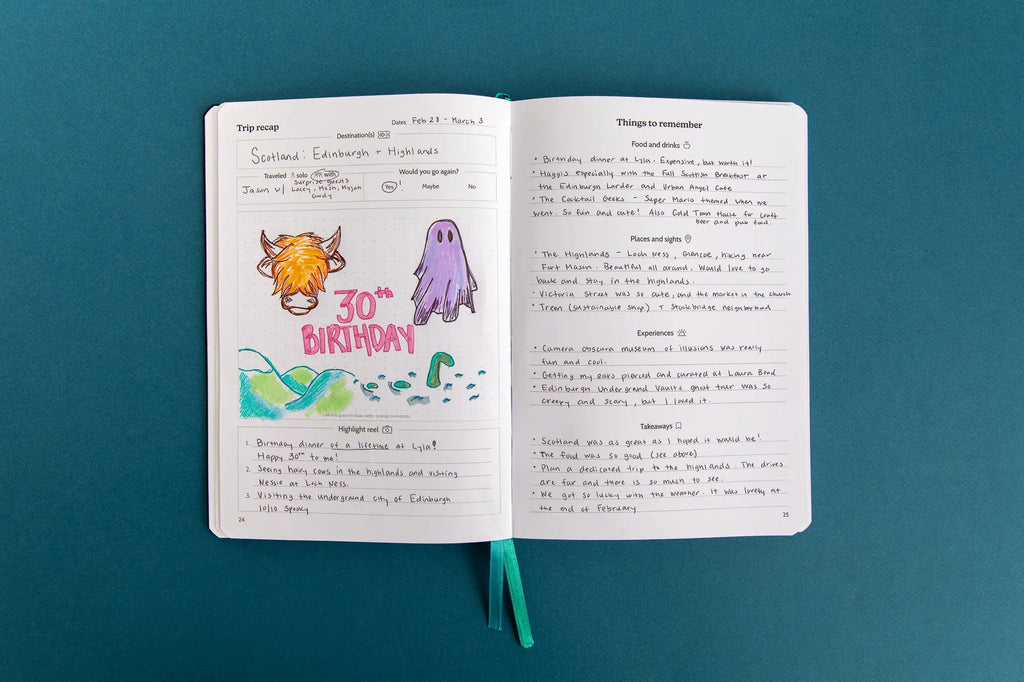 Trip recap
Dates Feb 28 - March 3
Destination(s)
Scotland: Edinburgh + Highlands
Traveled solo with
Jason w/ Surprise guests
Lacey, Mash,
Goody
Would you go again?
Yes! Maybe No
30th
BIRTHDAY
Use this space to draw, write, or keep mementos
Highlight reel
1. Birthday dinner of a lifetime at Lyla!
Happy 30th to me!
2. Seeing hairy cows in the highlands and visiting
Nessie at Loch Ness.
3. Visiting the underground city of Edinburgh
10/10 Spooky
24
Things to remember
Food and drinks
• Birthday dinner at Lyla. Expensive, but worth it!
• Haggis especially with the Full Scottish Breakfast at
the Edinburgh Larder and Urban Angel Cafe
• The Cocktail Geeks - Super Mario themed when we
went. So fun and cute! Also Cold Town House for craft
beer and pub food.
Places and sights
• The Highlands - Loch Ness, Glencoe, hiking near
Fort Mason. Beautiful all around. Would love to go
back and stay in the highlands.
• Victoria Street was so cute, and the market in the church
• Treen (sustainable shop) + Stockbridge neighborhood
Experiences
• Camera obscura museum of illusions was really
fun and cool.
• Getting my ears pierced and curated at Laura Bond
• Edinburgh Underground Vaults ghost tour was so
creepy and scary, but I loved it.
Takeaways
• Scotland was as great as I hoped it would be!
• The food was so good (see above)
• Plan a dedicated trip to the highlands. The drives
are far and there is so much to see.
• We got so lucky with the weather. It was lovely at
the end of February
25